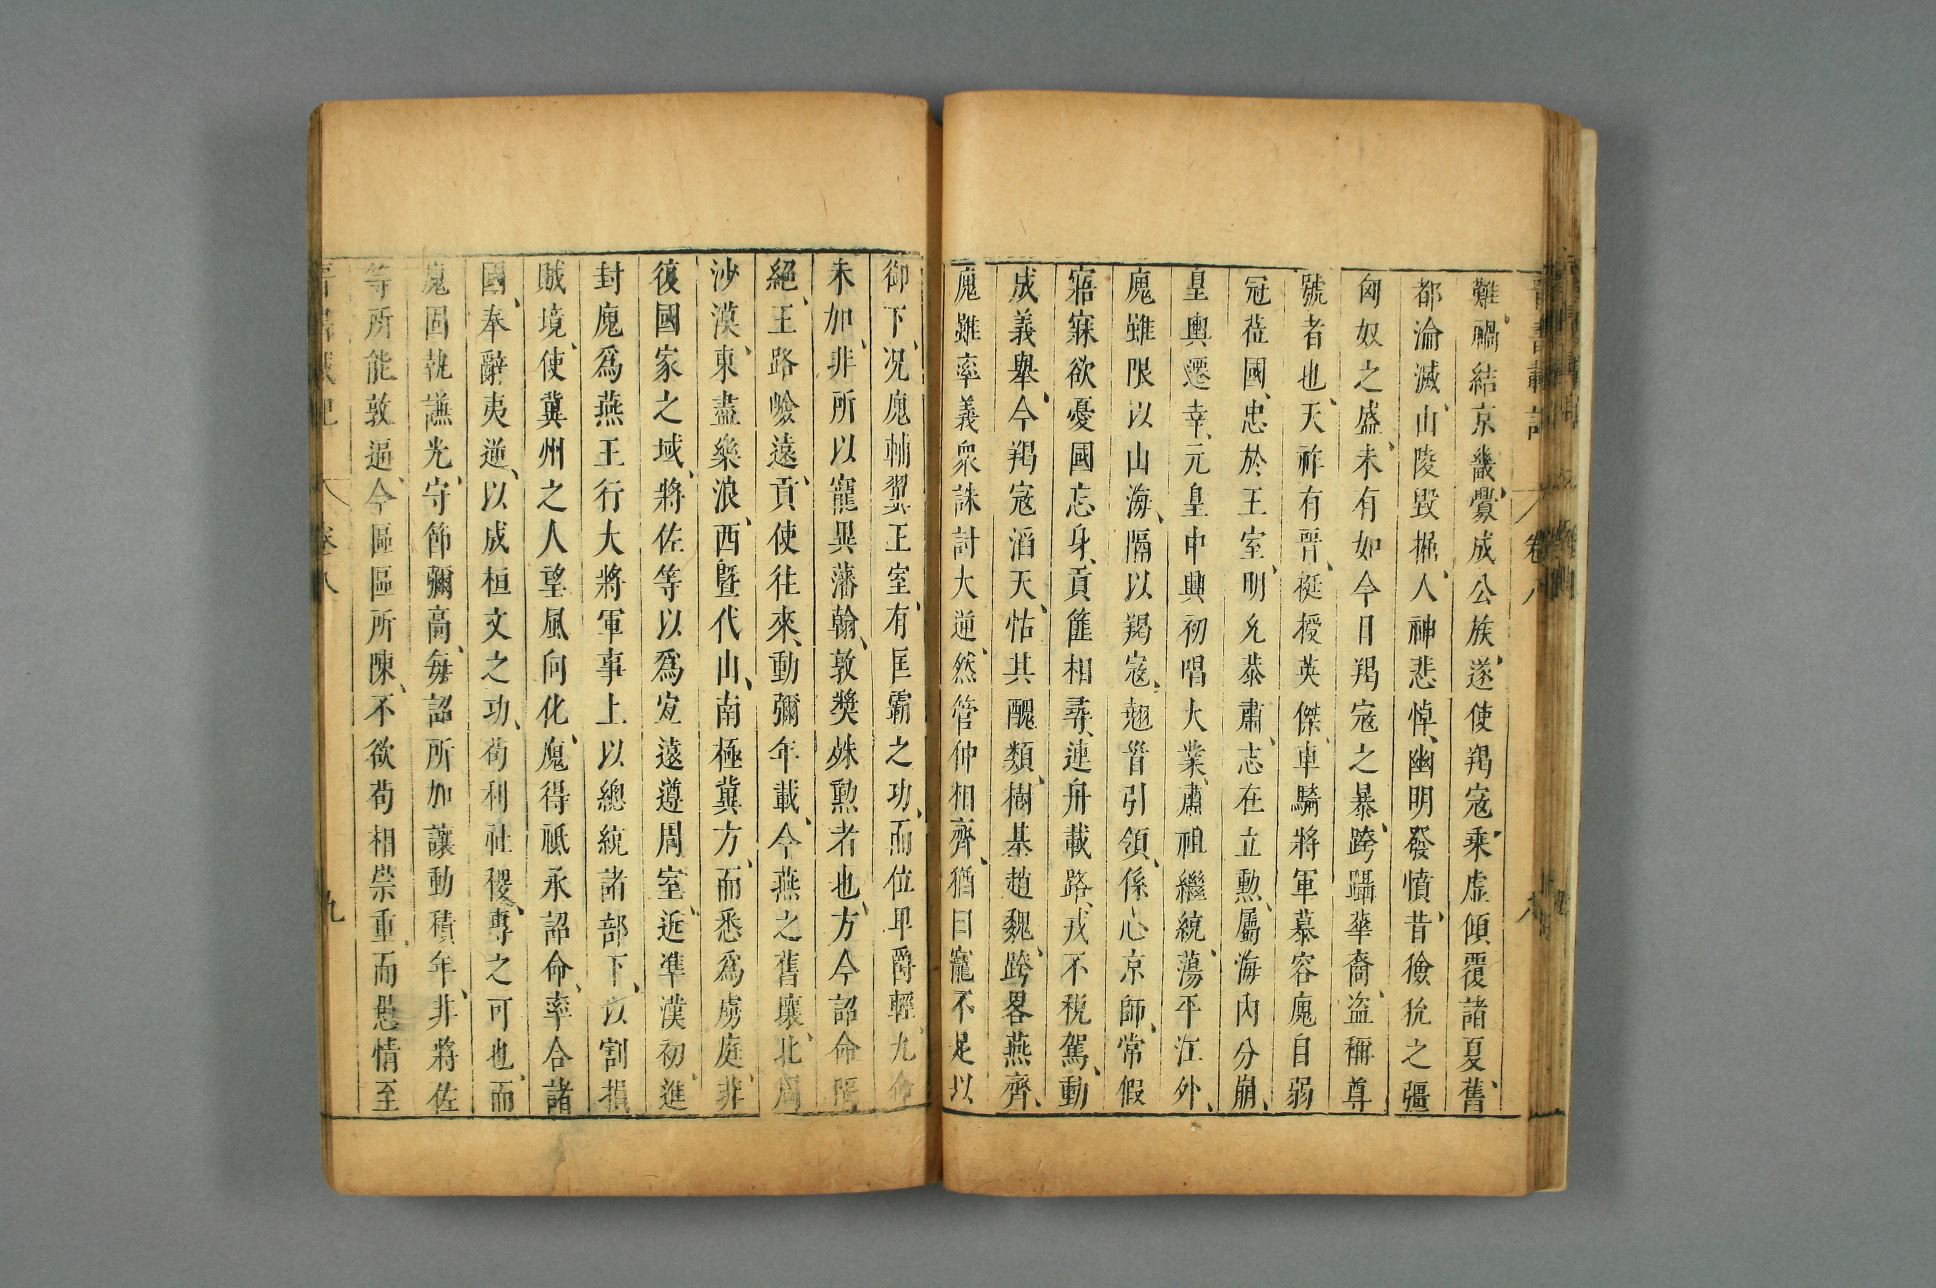 難、禍結京畿、釁成公族、遂使羯寇乘虛、傾覆諸夏、舊
都淪滅、山陵毀掘、人神悲悼、幽明發憤、昔獫狁之彊
匈奴之盛、未有如今日羯寇之暴、跨躡華裔、盜稱尊
號者也、天祚有晉、挺授英傑、車騎將軍慕容廆自弱
冠莅國、忠於王室、明允恭肅、志在立勲、屬海内分崩、
皇輿遷幸、元皇中興初唱大業、肅祖繼統、蕩平江外、
廆雖限以山海、隔以羯寇、翹首引領、係心京師、常假
寤寐欲憂國忘身、貢篚相尋、連舟載路、戎不稅駕、動
成義舉、今羯寇滔天、怙其醜類、樹基趙魏、跨畧燕齊、
廆雖率義衆誅討大逆、然管仲相齊、猶曰寵不足以
御下、况廆輔翼王室、有匡霸之功、而位卑爵輕、九
未加、非所以寵異藩翰、敦獎姝勲者也、方今詔命隔
絕、王路嶮遠、貢使往來、動彌年載、今燕之舊壤、北周
沙漠、東盡樂浪、西曁代山、南極冀方、而悉爲虜庭、非
復國家之域、將佐等以爲宜遠遵周室、近準漢初、進
封廆爲燕王行大將軍事上以總統諸部、下以割損
賊境、使冀州之人望風向化、廆得祗承詔命、率合諸
國、奉辭夷逆、以成桓文之功、苟利社稷、專之可也、而
廆固執謙光、守節彌高、每詔所加、讓動積年、非將佐
等所能敦逼、今區區所陳、不欲苟相崇重、而愚情至
晉書載記 卷八 九